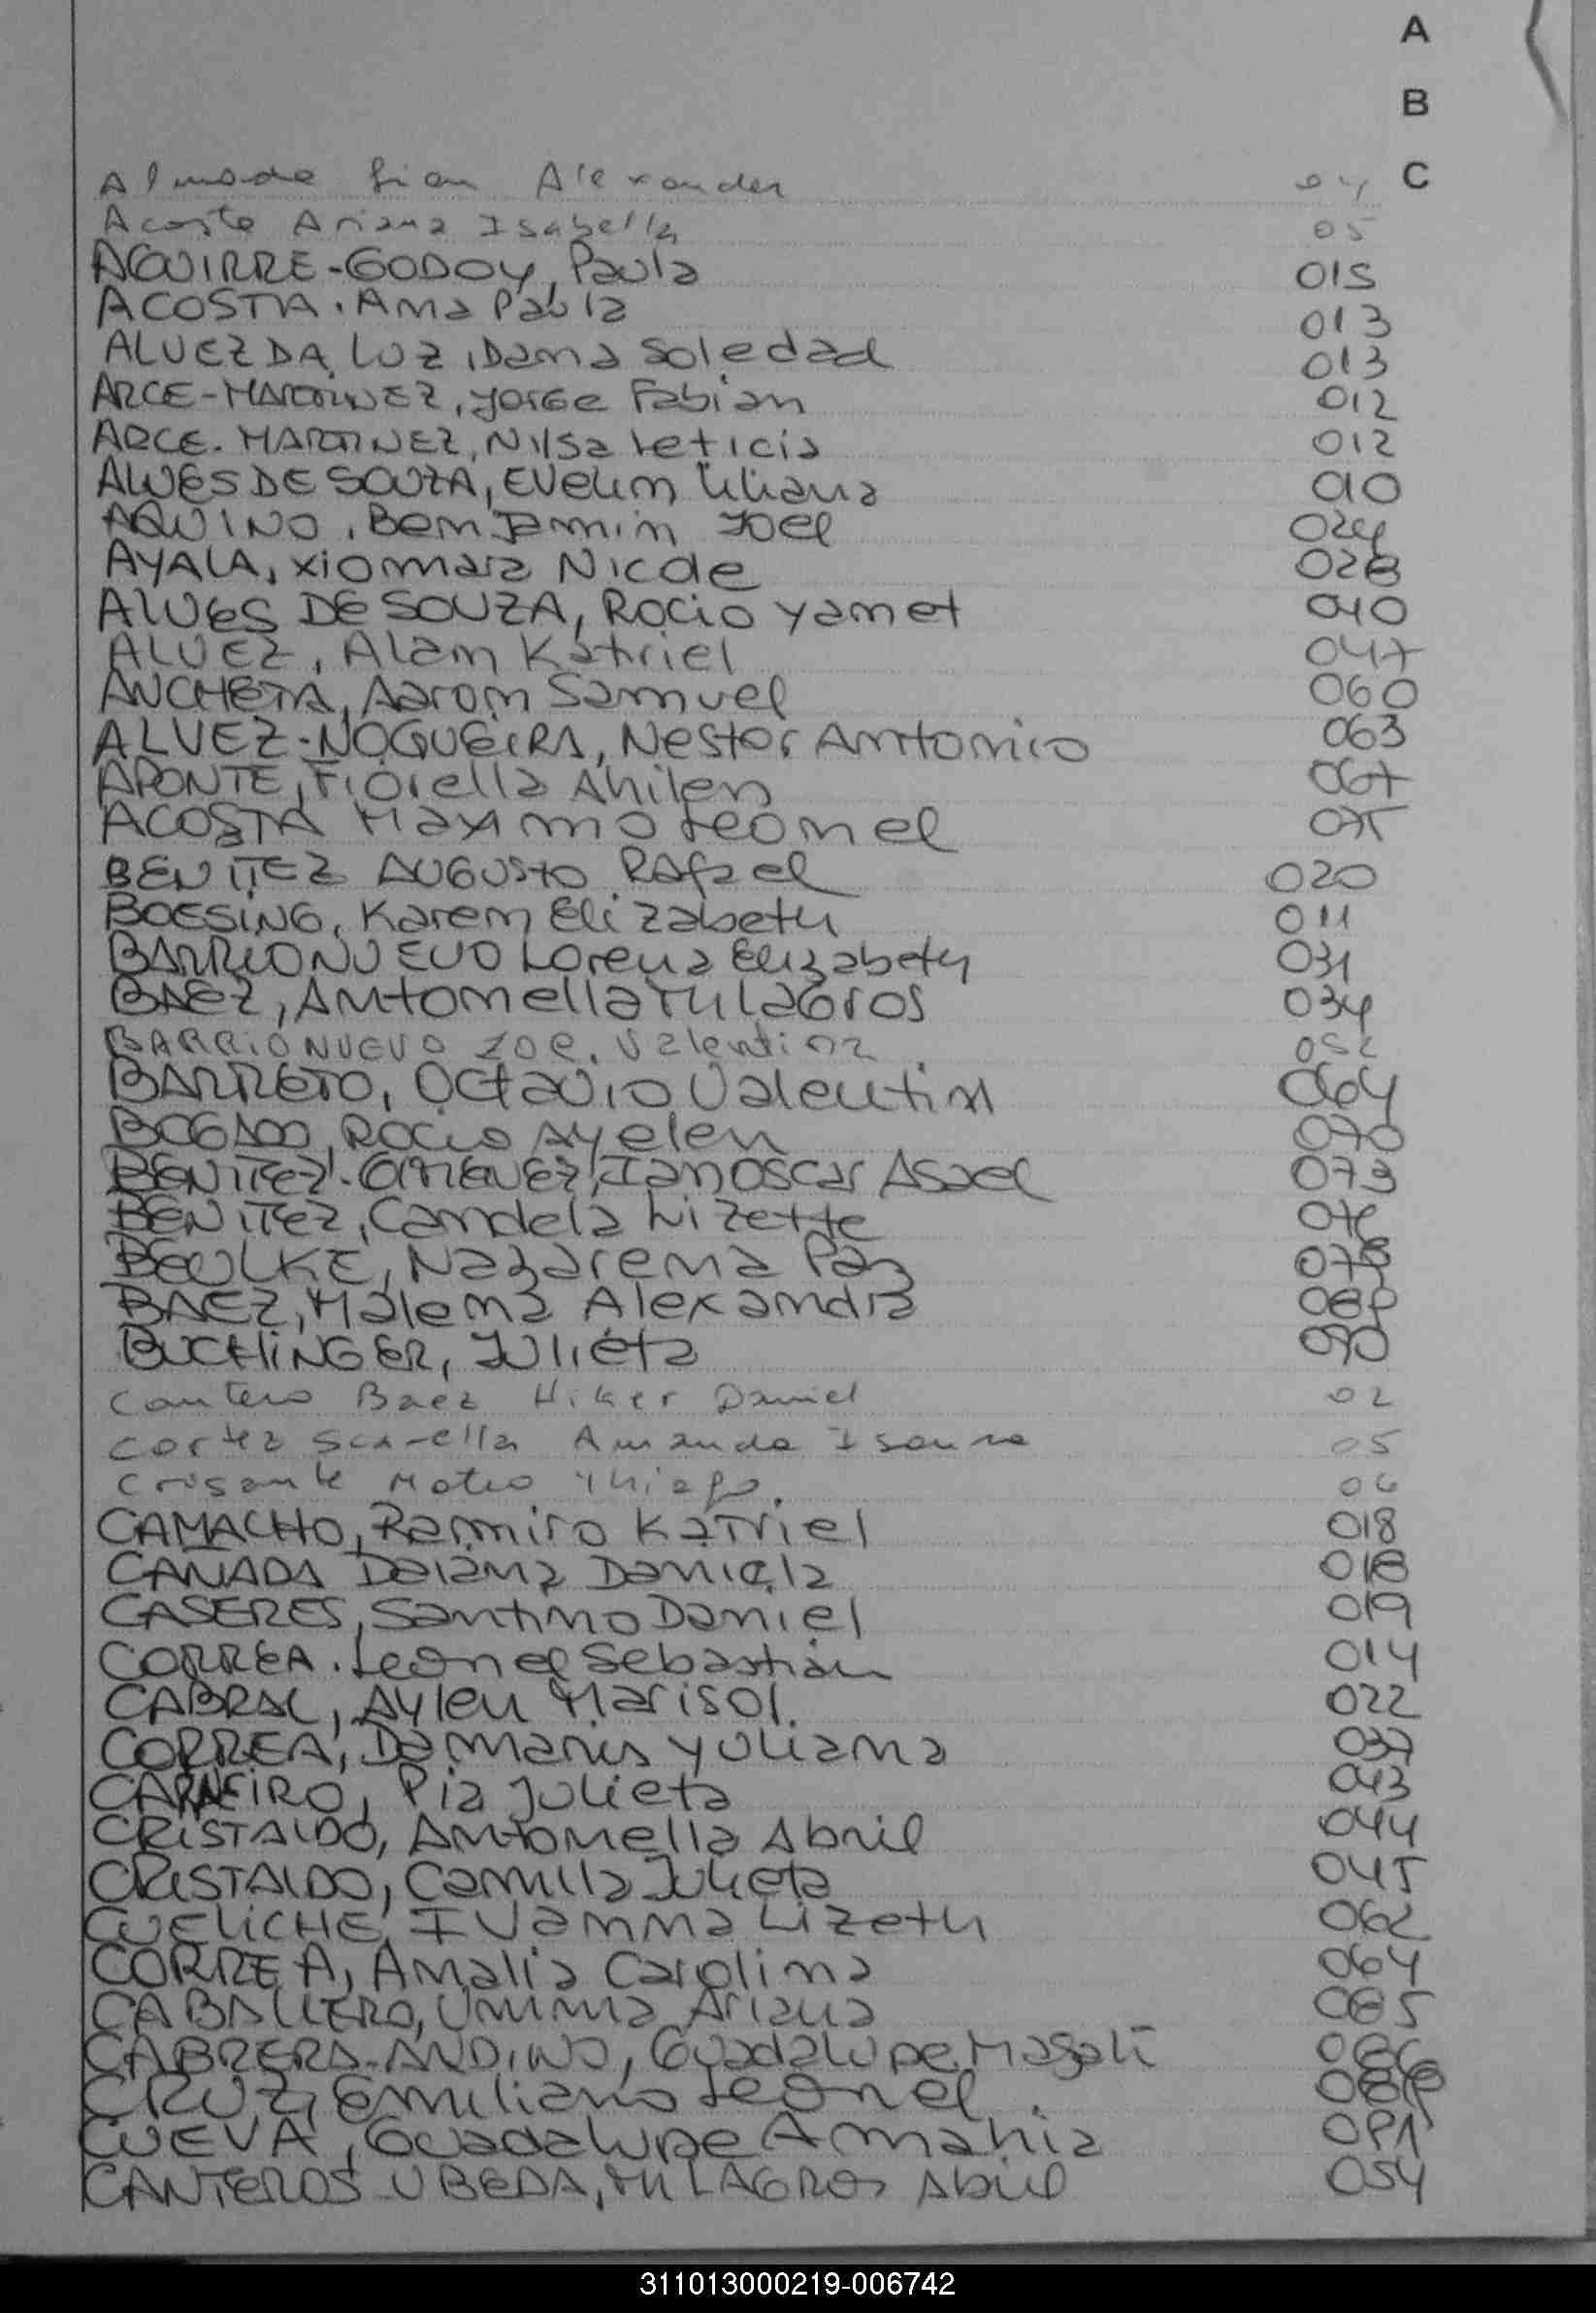 A
B
C
Almada Gian Alexander 04
Acosta Ariana Isabella 05
AGUIRRE-GODOY, Paula 015
ACOSTA. Ana Paula 013
ALVEZ DA LUZ, Dana Soledad 013
ARCE-MARTINEZ, Jorge Fabian 012
ARCE. MARTINEZ, Nilsa Leticia 012
ALVES DE SOUZA, Evelin Liliana 010
AQUINO, Benjamin Joel 024
AYALA, Xiomara Nicole 028
ALVES DE SOUZA, Rocio Yanet 040
ALVEZ, Alan Katriel 047
ANCHETA, Aaron Samuel 060
ALVEZ-NOGUEIRA, Nestor Antonio 063
APONTE, Fiorella Ahilen 067
ACOSTA Maximo Leonel 075
BENITEZ AUGUSTO Rafael 020
BOESING, Karen Elizabeth 011
BARRIONUEVO Lorena Elizabeth 031
BAEZ, Antonella Milagros 034
BARRIONUEVO Zoe. Valentina 052
BARRETO, Octavio Valentin 064
BOGADO, Rocio Ayelen 070
BENITEZ-GIMENEZ, Ian Oscar Asael 073
BENITEZ, Candela Lizette 076
BEULKE, Nazarena Paz 078
BAEZ, Malena Alexandra
BUCHINGER, Julieta 090
Cantero Baez Hiker Daniel 02
Cortez Scarella Amanda Isaura 05
Crisante Mateo Thiago. 06
CAMACHO, Ramiro Katriel 018
CAÑADA Daiana Daniela 018
CASERES, Santino Daniel 019
CORREA. Leonel Sebastián 014
CABRAL, Aylen Marisol. 022
CORREA, Damaris Yuliana 037
CARNEIRO, Pia Julieta 043
CRISTALDO, Antonella Abril 044
CRISTALDO, Camila Julieta 045
CUELICHE, Ivanna Lizeth 062
CORREA, Amalia Carolina 064
CABALLERO, Ariana 085
CABRERA-ANDINO, Guadalupe Magali 086
CRUZ, Emiliano Leonel.
CUEVA, Guadalupe Amahia 091
CANTEROS UBEDA, MILAGROS Abril 054
311013000219-006742